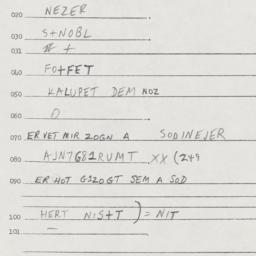 020 NEZER
030 S+NOBL
031 # +
040 FO+FET
050 KALUPET DEM NOZ
060 O
070 ERVET MIR ZOGN A SODINEJER
080 AJN7G81RUMT XX (249
090 ER HOT GSZOGT SEM A SOD
100 HERT NIS+T ) = NIT
101 —